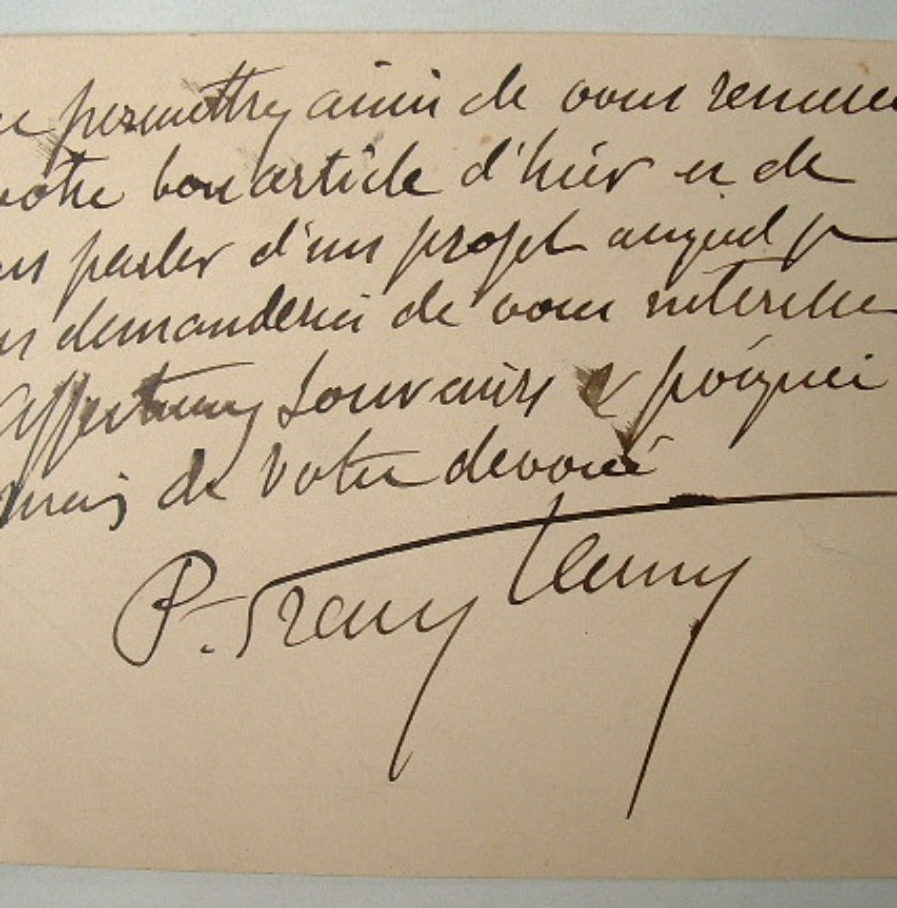 permettrez ainsi de vous remercier
votre bon article d'hier et de
parler d'un projet auquel je
demanderai de vous intéresser
Affectueux souvenirs & poignée
mais de votre dévoué
P. Franz Namur